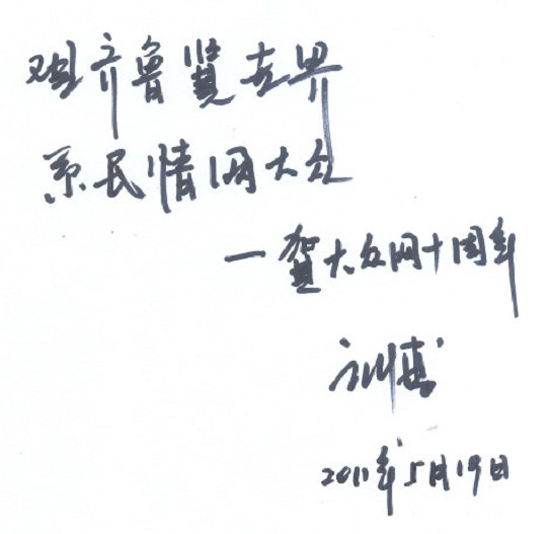 观齐鲁览世界
系民情网大众
一贺大众网十周年
2011年5月19日